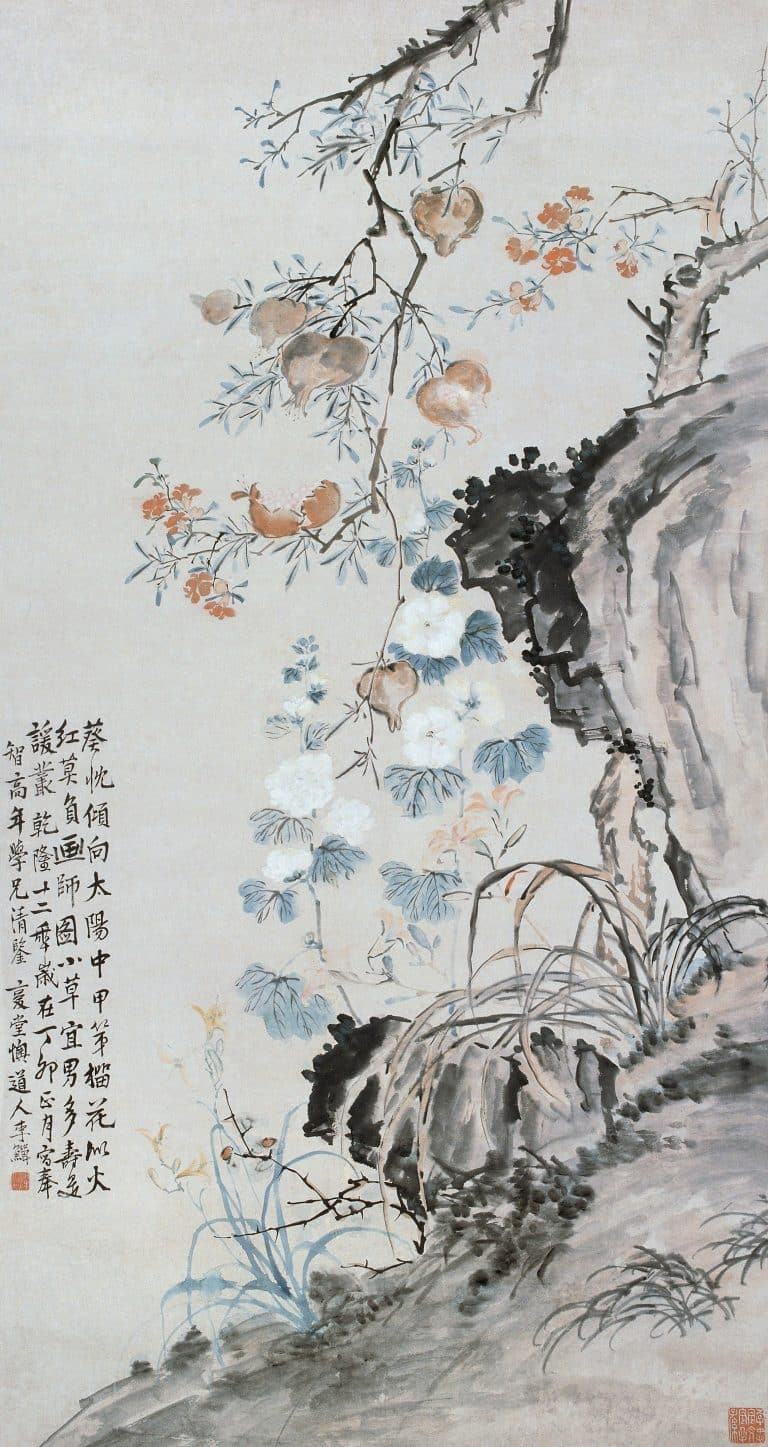 葵忱傾向太陽中甲第榴花似火
紅莫負画師圖小草宜男多壽是
諼叢 乾隆十二年歲在丁卯正月寫奉
智高年學兄清鑒 復堂懊道人李鱓